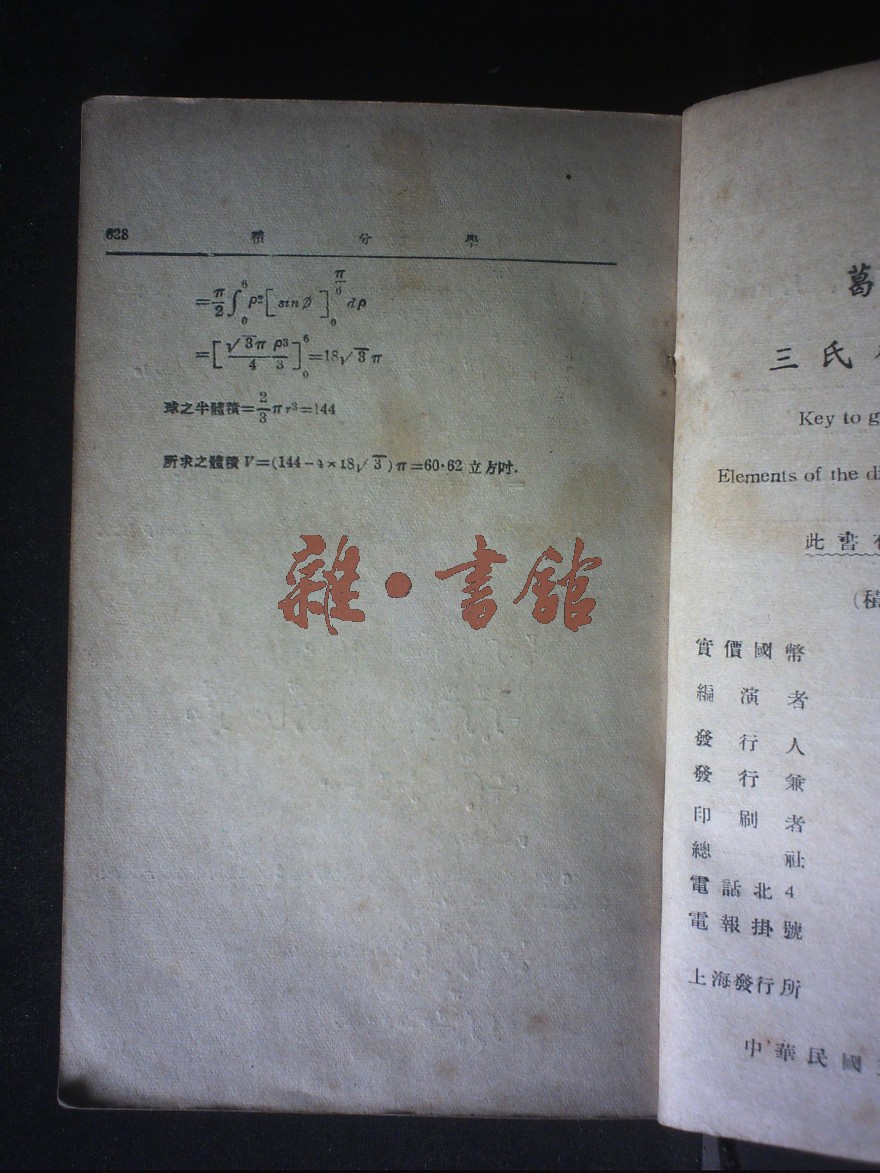 628 積 分 學
=π/2∫₀⁶ρ²[sinφ]₀^(π/6)dρ
=[√3π/4 ρ³/3]₀⁶=18√3π
球之半體積=2/3πr³=144
所求之體積V=(144-4×18√3)π=60·62立方吋.
雜·書館
葛
三氏
Key to g
Elements of the di
此書
(積
實價國幣
編演者
發行人
發行兼
印刷者
總社
電話北4
電報掛號
上海發行所
中華民國